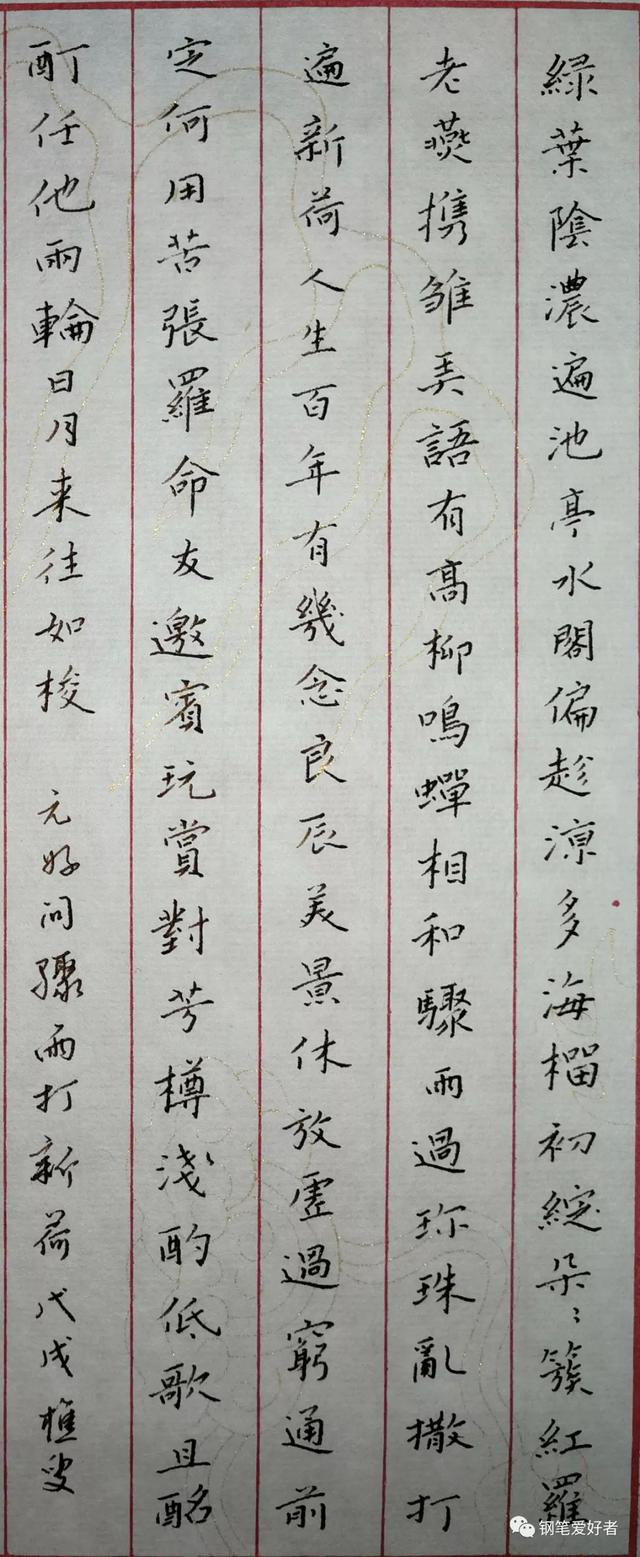 緑葉陰濃遍池亭水閣偏趁涼多海榴初綻朵〻簇紅羅
老燕携雛弄語有高柳鳴蟬相和驟雨過珎珠亂撒打
遍新荷人生百年有幾念良辰美景休放虛過窮通前
定何用苦張羅命友邀賓玩賞對芳樽淺酌低歌且酩
酊任他兩輪日月来往如梭 元好問驟雨打新荷戊戌樵叟
钢笔爱好者